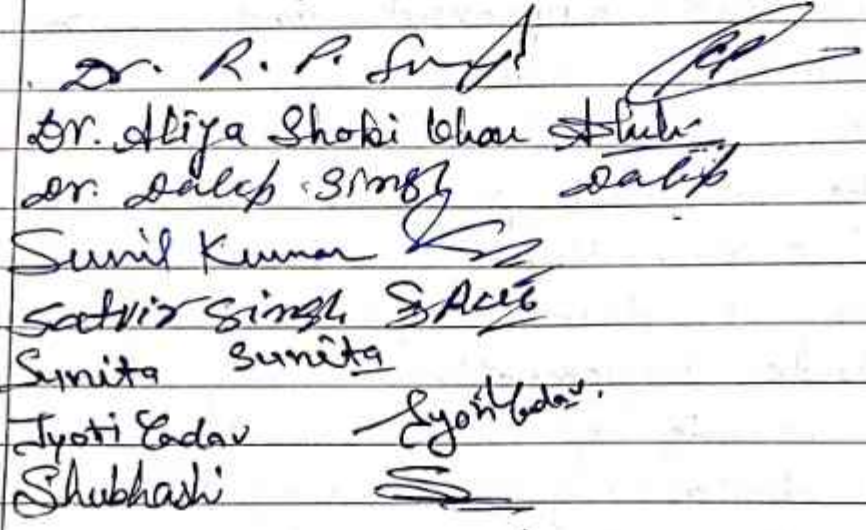 Dr. R. P. Singh
Dr. Aliya Shobi Khan
Dr. Dalip Singh Dalip
Sunil Kumar
Satvir Singh
Sunita Sunita
Jyoti Yadav Jyoti Yadav.
Shubhashi